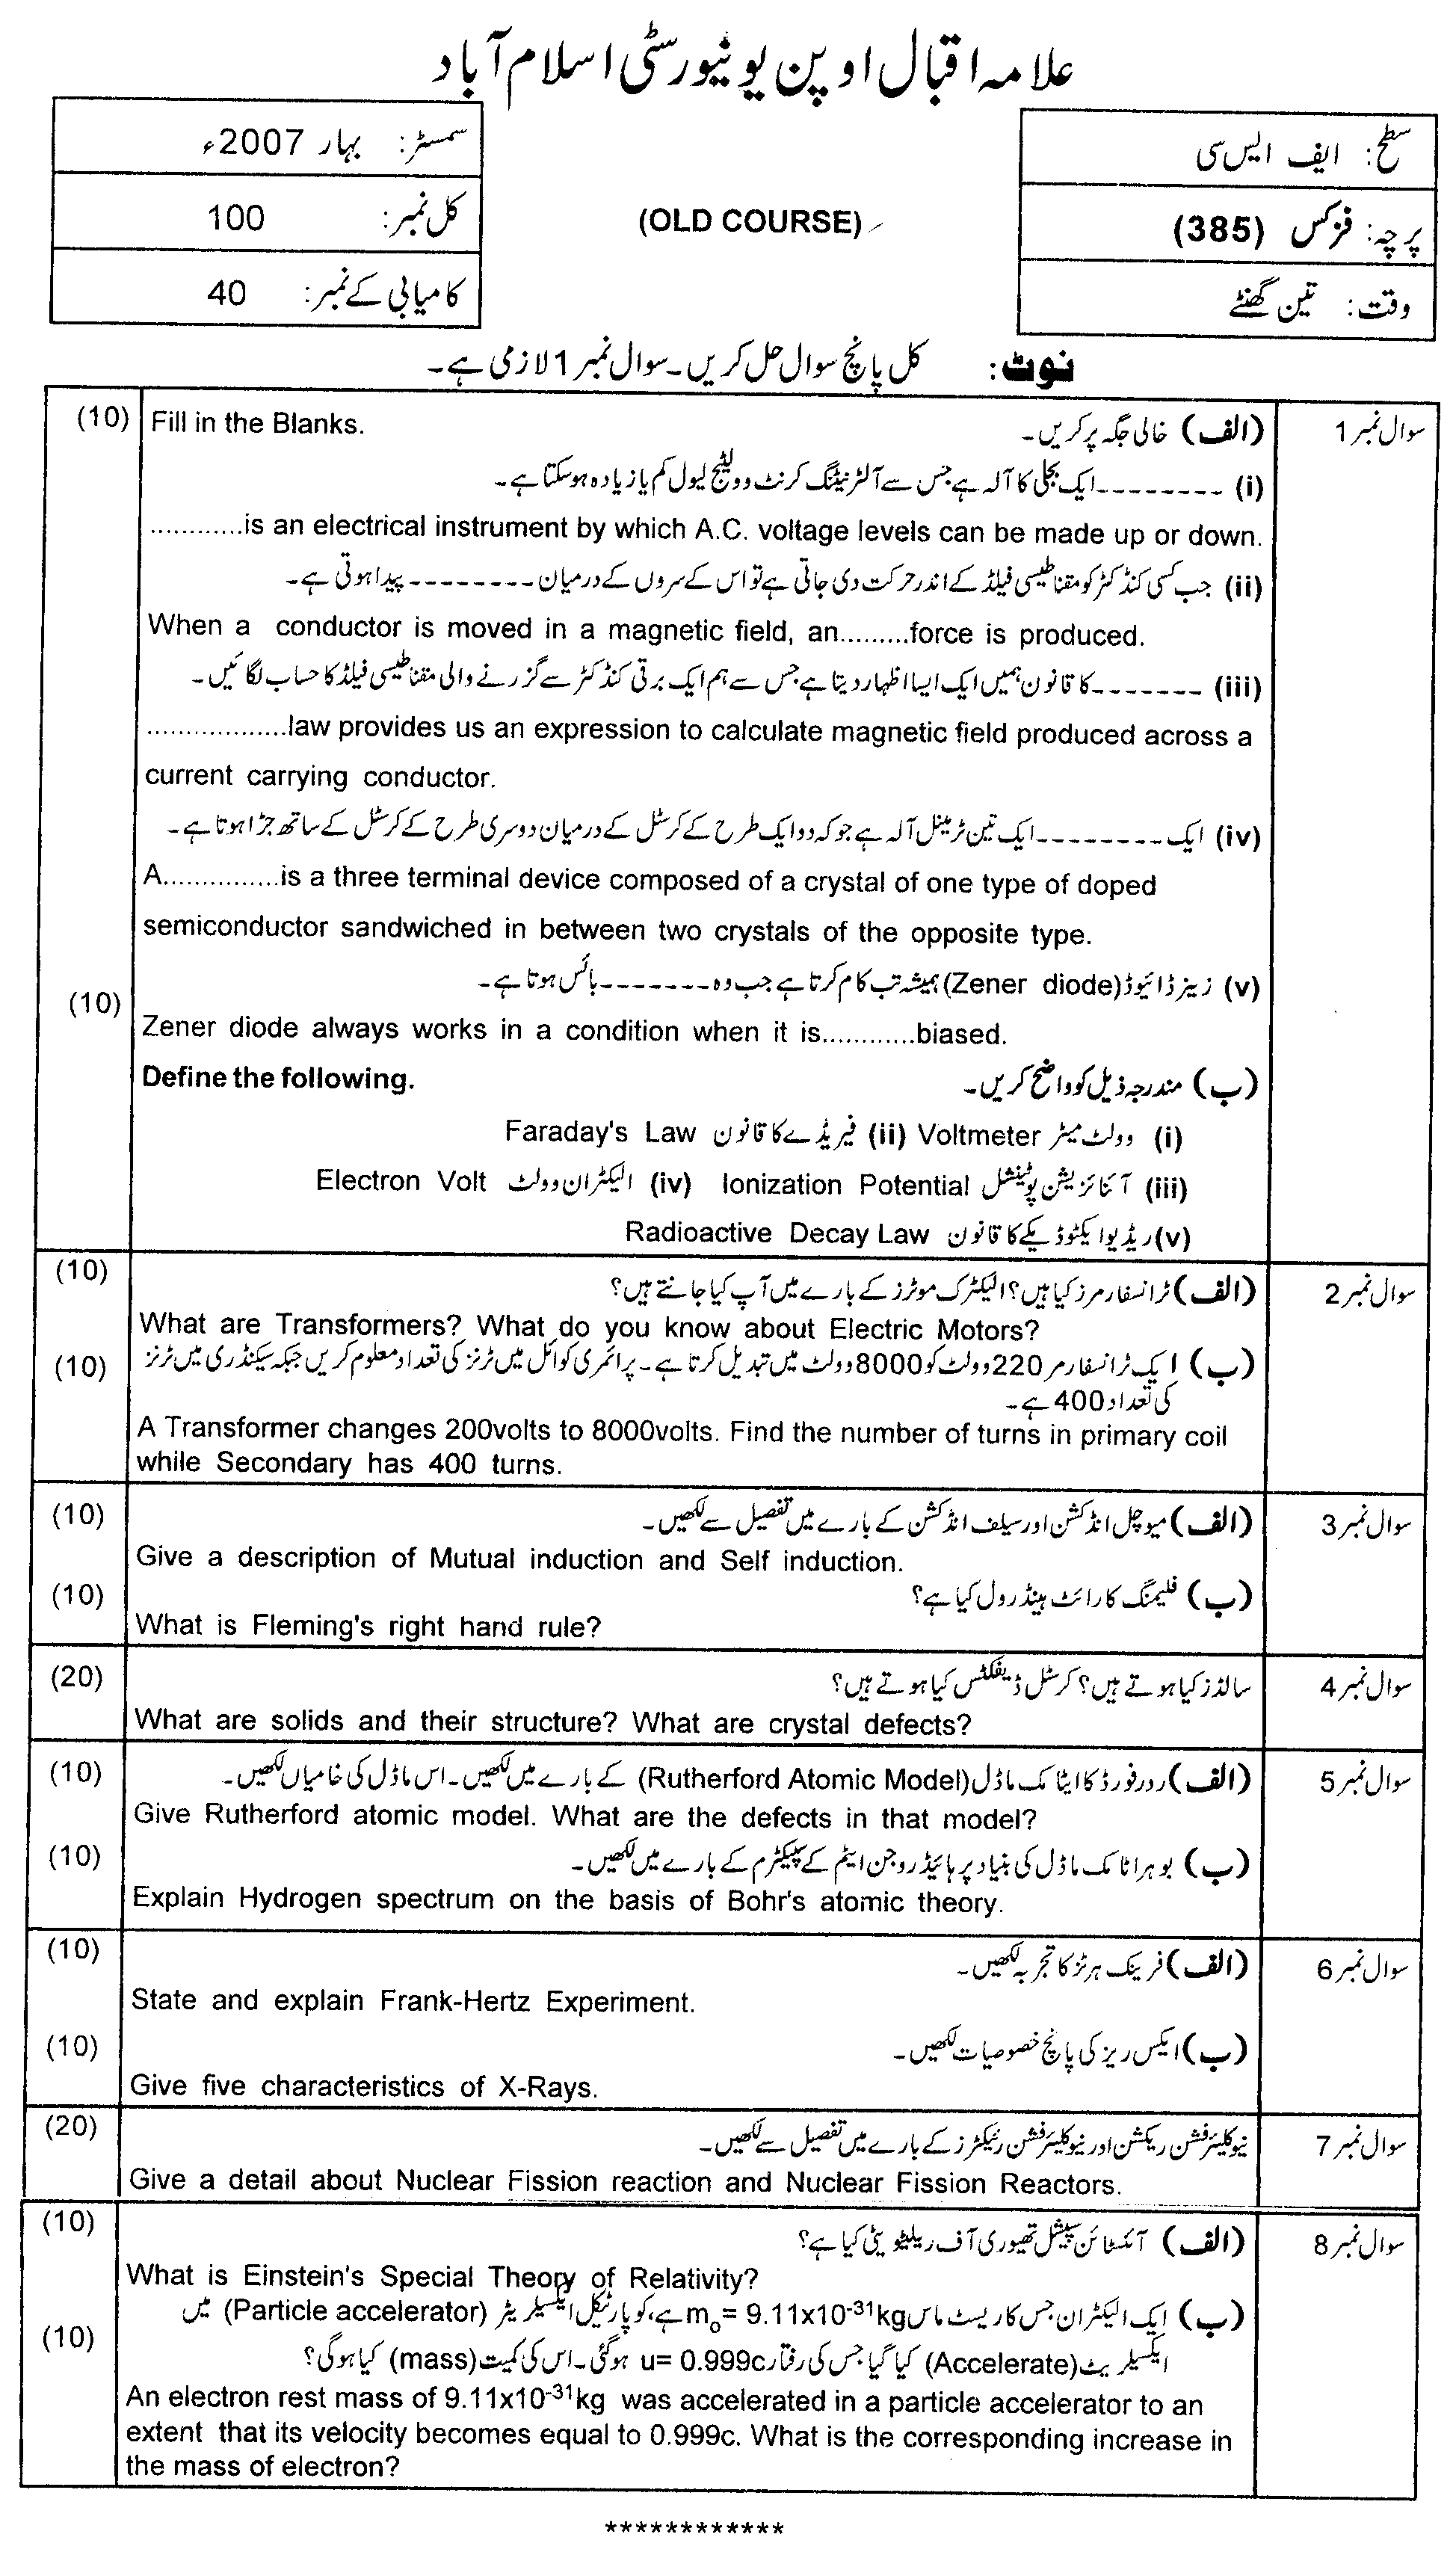 علامہ اقبال اوپن یونیورسٹی اسلام آباد
سطح: ایف ایس سی
پرچہ: فزکس (385)
وقت: تین گھنٹے
(OLD COURSE)
سمسٹر: بہار 2007ء
کل نمبر: 100
کامیابی کے نمبر: 40
نوٹ: کل پانچ سوال حل کریں۔ سوال نمبر 1 لازمی ہے۔
سوال نمبر 1 (الف) خالی جگہ پر کریں۔ Fill in the Blanks. (10)
(i) ---------ایک بجلی کا آلہ ہے جس سے آلٹرنیٹنگ کرنٹ وولٹیج لیول کم یا زیادہ ہوسکتا ہے۔
............is an electrical instrument by which A.C. voltage levels can be made up or down.
(ii) جب کسی کنڈکٹر کو مقناطیسی فیلڈ کے اندر حرکت دی جاتی ہے تو اس کے سروں کے درمیان --------پیدا ہوتی ہے۔
When a conductor is moved in a magnetic field, an.........force is produced.
(iii) --------کا قانون ہمیں ایک ایسا اظہار دیتا ہے جس سے ہم ایک برقی کنڈکٹر سے گزرنے والی مقناطیسی فیلڈ کا حساب لگائیں۔
..................law provides us an expression to calculate magnetic field produced across a
current carrying conductor.
(iv) ایک ---------ایک تین ٹرمینل آلہ ہے جو کہ دو ایک طرح کے کرسٹل کے درمیان دوسری طرح کے کرسٹل کے ساتھ جڑا ہوتا ہے۔
A...............is a three terminal device composed of a crystal of one type of doped
semiconductor sandwiched in between two crystals of the opposite type.
(v) زینر ڈائیوڈ (Zener diode) ہمیشہ تب کام کرتا ہے جب وہ --------بائس ہوتا ہے۔
(10)
Zener diode always works in a condition when it is............biased.
(ب) مندرجہ ذیل کو واضح کریں۔ Define the following.
(i) وولٹ میٹر Voltmeter (ii) فیریڈے کا قانون Faraday's Law
(iii) آئنائزیشن پوٹینشل Ionization Potential (iv) الیکٹران وولٹ Electron Volt
(v) ریڈیو ایکٹو ڈیکے کا قانون Radioactive Decay Law
سوال نمبر 2 (الف) ٹرانسفارمرز کیا ہیں؟ الیکٹرک موٹرز کے بارے میں آپ کیا جانتے ہیں؟ (10)
What are Transformers? What do you know about Electric Motors?
(ب) ایک ٹرانسفارمر 220 وولٹ کو 8000 وولٹ میں تبدیل کرتا ہے۔ پرائمری کوائل میں ٹرنز کی تعداد معلوم کریں جبکہ سیکنڈری میں ٹرنز (10)
کی تعداد 400 ہے۔
A Transformer changes 200volts to 8000volts. Find the number of turns in primary coil
while Secondary has 400 turns.
سوال نمبر 3 (الف) میوچل انڈکشن اور سیلف انڈکشن کے بارے میں تفصیل سے لکھیں۔ (10)
Give a description of Mutual induction and Self induction.
(ب) فلیمنگ کا رائٹ ہینڈ رول کیا ہے؟ (10)
What is Fleming's right hand rule?
سوال نمبر 4 سالڈز کیا ہوتے ہیں؟ کرسٹل ڈیفکٹس کیا ہوتے ہیں؟ (20)
What are solids and their structure? What are crystal defects?
سوال نمبر 5 (الف) ردرفورڈ کا ایٹامک ماڈل (Rutherford Atomic Model) کے بارے میں لکھیں۔ اس ماڈل کی خامیاں لکھیں۔ (10)
Give Rutherford atomic model. What are the defects in that model?
(ب) بوہر اٹامک ماڈل کی بنیاد پر ہائیڈروجن ایٹم کے سپیکٹرم کے بارے میں لکھیں۔ (10)
Explain Hydrogen spectrum on the basis of Bohr's atomic theory.
سوال نمبر 6 (الف) فرینک ہرٹز کا تجربہ لکھیں۔ (10)
State and explain Frank-Hertz Experiment.
(ب) ایکس ریز کی پانچ خصوصیات لکھیں۔ (10)
Give five characteristics of X-Rays.
سوال نمبر 7 نیوکلیئر فشن ریکشن اور نیوکلیئر فشن رئیکٹرز کے بارے میں تفصیل سے لکھیں۔ (20)
Give a detail about Nuclear Fission reaction and Nuclear Fission Reactors.
سوال نمبر 8 (الف) آئنسٹائن سپیشل تھیوری آف ریلٹیویٹی کیا ہے؟ (10)
What is Einstein's Special Theory of Relativity?
(ب) ایک الیکٹران جس کا ریسٹ ماس m₀= 9.11x10⁻³¹kg ہے، کو پارٹیکل ایکسلریٹر (Particle accelerator) میں
(10)
ایکسلریٹ (Accelerate) کیا گیا جس کی رفتار u= 0.999c ہوگئی۔ اس کی کمیت (mass) کیا ہوگی؟
An electron rest mass of 9.11x10⁻³¹kg was accelerated in a particle accelerator to an
extent that its velocity becomes equal to 0.999c. What is the corresponding increase in
the mass of electron?
************